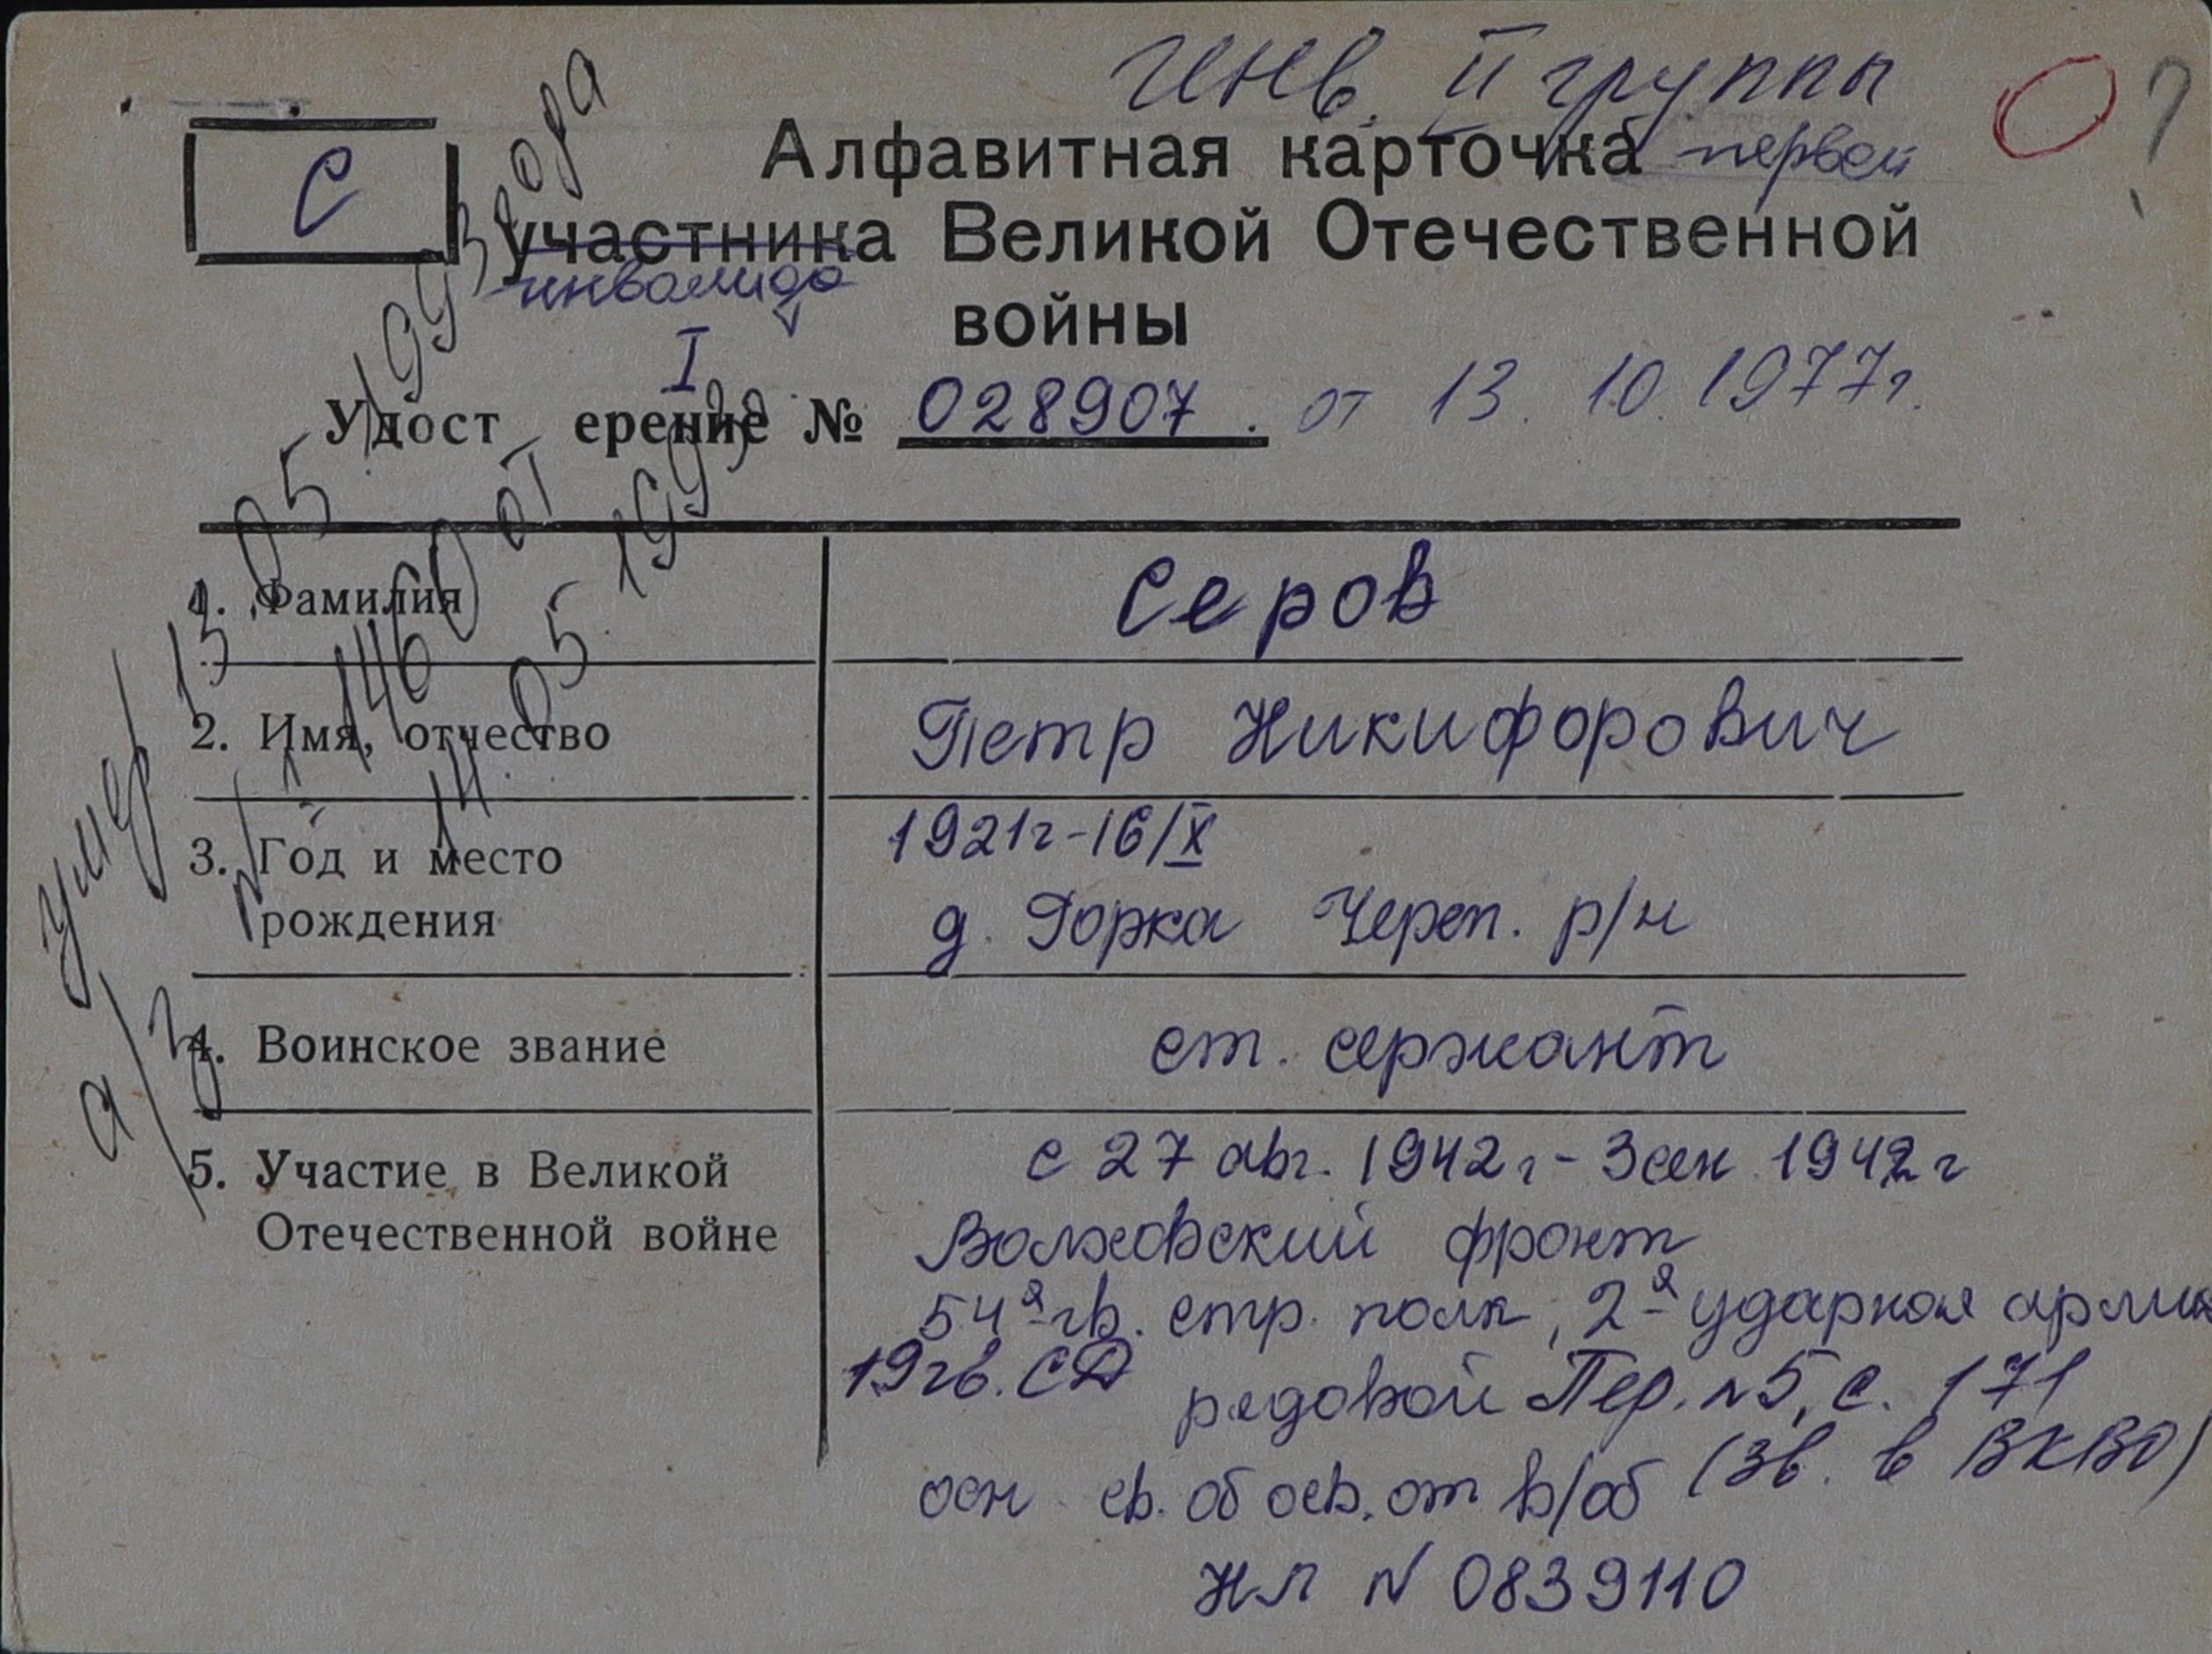 инв. II группы
О ?
С
Алфавитная карточка первой
участника Великой Отечественной
инвалида
войны
I
Удост ерение № 028907. от 13. 10. 1977г.
1. Фамилия
Серов
2. Имя, отчество
Петр Никифорович
3. Год и место
рождения
1921г-16/IX
д. Горка Череп. р/н
4. Воинское звание
ст. сержант
5. Участие в Великой
Отечественной войне
с 27 авг. 1942г - 3 сен 1942г
Волховский фронт
54я гв. стр. полк, 2-я ударная армия
19гв. СД рядовой Пер. N5, с. 171
осн св. об осв. от в/об (Зв. в ВКВО)
НЛ N 0839110
умер 13 05. 1993 года
а/з N 1460 от
14. 05. 1993